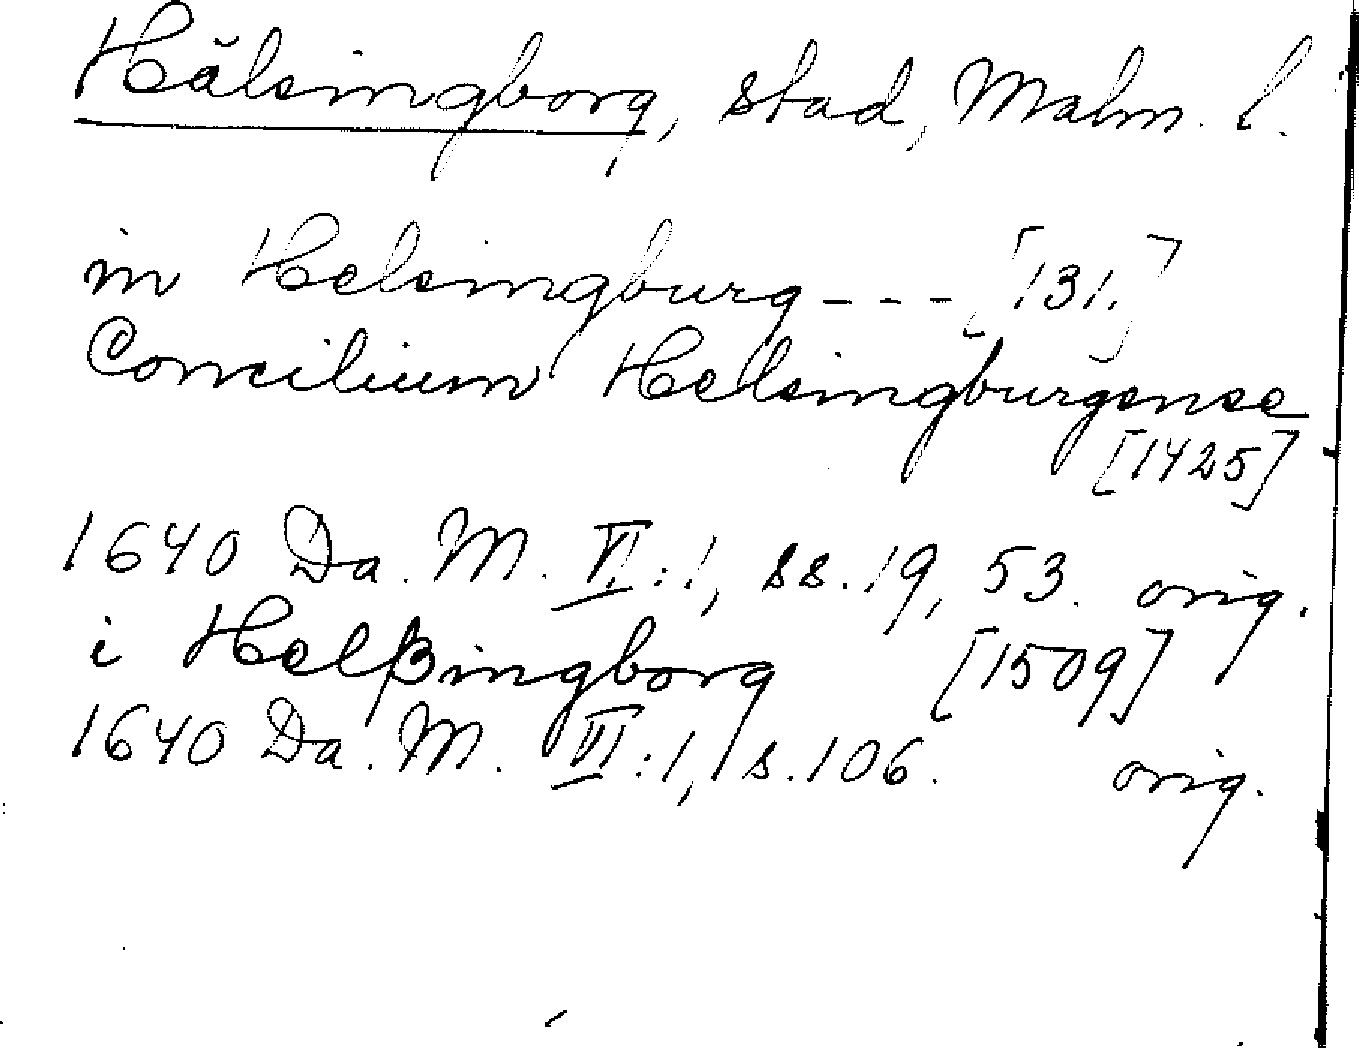 Hälsingborg, stad, Malm. l.
in Helsingburg --- [131.]
Concilium Helsingburgense
[1425]
1640 Da. M. VI:1, ss. 19, 53. orig.
i Helßingborg [1509]
1640 Da. M. VI:1, s. 106. orig.